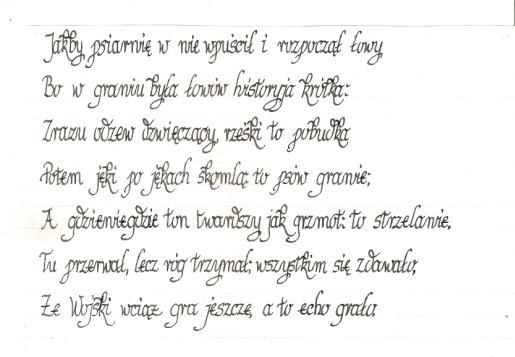 Jakby psiarnię w nie wpuścił i rozpoczął łowy
Bo w graniu była łowów historyja krótka:
Zrazu odzew dźwięczący, rześki to pobudka
Potem jęki po jękach skomlą to psów granie;
A gdzieniegdzie ton twardszy jak grzmot: to strzelanie.
Tu przerwał, lecz róg trzymał; wszystkim się zdawało;
Że Wojski wciąż gra jeszcze, a to echo grało